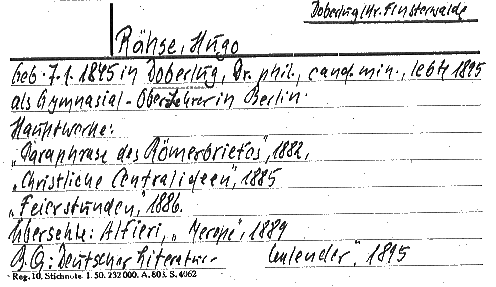 Doberlug/Kr. Finsterwalde
Röhse, Hugo
geb. 7.1. 1845 in Doberlug, Dr. phil., cand. min., lebte 1895
als Gymnasial-Oberlehrer in Berlin.
Hauptwerke:
„Paraphrase des Römerbriefes", 1882,
„Christliche Centralideen", 1885
„Feierstunden", 1886.
Übersetzte: Alfieri, „Merope", 1889
Deutscher Literatur- Kalender", 1895
Reg. 10. Stichnote. 1. 50. 232 000. A. 803. S. 4062